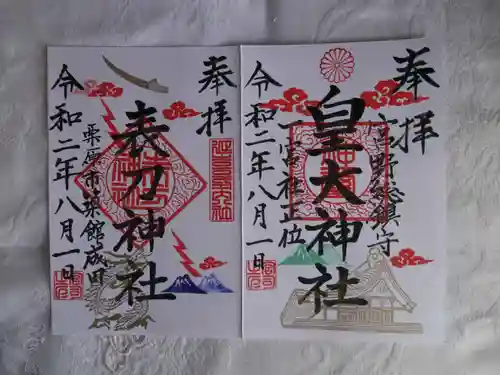 奉拝
宮野総鎮守
皇大神社
一宮社正位
令和二年八月一日
奉拝
表刀神社
栗原市築館成田
令和二年八月一日